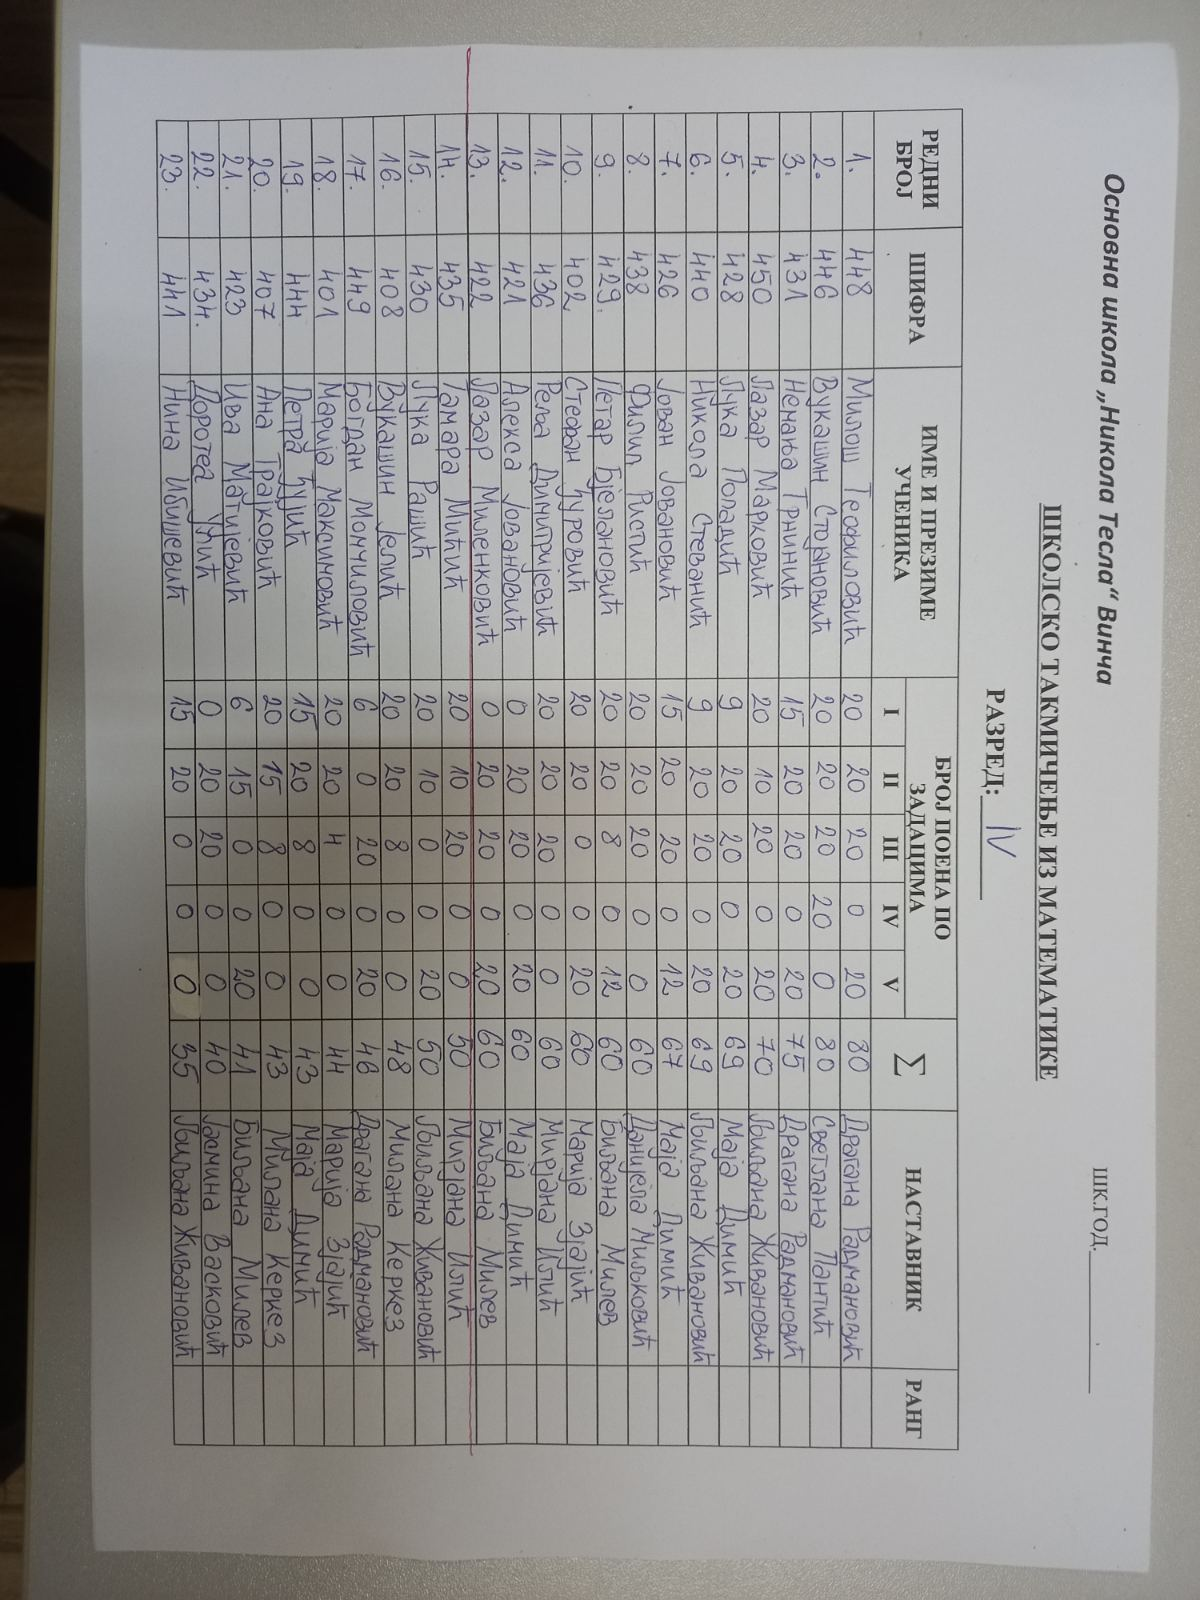 Основна школа „Никола Тесла“ Винча
ШК.ГОД.
ШКОЛСКО ТАКМИЧЕЊЕ ИЗ МАТЕМАТИКЕ
РАЗРЕД: IV
РЕДНИ БРОЈ ШИФРА ИМЕ И ПРЕЗИМЕ УЧЕНИКА БРОЈ ПОЕНА ПО ЗАДАЦИМА ∑ НАСТАВНИК РАНГ
I II III IV V
1. 448 Милош Теофиловић 20 20 20 0 20 80 Драгана Радмановић
2. 446 Вукашин Стојановић 20 20 20 20 0 80 Светлана Пантић
3. 431 Немања Трнинић 15 20 20 0 20 75 Драгана Радмановић
4. 450 Лазар Марковић 20 10 20 0 20 70 Љиљана Живановић
5. 428 Лука Попадић 9 20 20 0 20 69 Маја Димић
6. 440 Никола Стеванић 9 20 20 0 20 69 Љиљана Живановић
7. 426 Јован Јовановић 15 20 20 0 12 67 Маја Димић
8. 438 Филип Ристић 20 20 20 0 0 60 Данијела Миљковић
9. 429. Петар Бјелановић 20 20 8 0 12 60 Биљана Милев
10. 402 Стефан Ђуровић 20 20 0 0 20 60 Марија Зјајић
11. 436 Реља Димитријевић 20 20 20 0 0 60 Мирјана Илић
12. 421 Алекса Јовановић 0 20 20 0 20 60 Маја Димић
13. 422 Лазар Миленковић 0 20 20 0 20 60 Биљана Милев
14. 435 Тамара Мићић 20 10 20 0 0 50 Мирјана Илић
15. 430 Лука Рашић 20 10 0 0 20 50 Љиљана Живановић
16. 408 Вукашин Јелић 20 20 8 0 0 48 Милана Керкез
17. 449 Богдан Момчиловић 6 0 20 0 20 46 Драгана Радмановић
18. 401 Марија Максимовић 20 20 4 0 0 44 Марија Зјајић
19. 444 Петра Ђујић 15 20 8 0 0 43 Маја Димић
20. 407 Ана Трајковић 20 15 8 0 0 43 Милана Керкез
21. 423 Ива Матијевић 6 15 0 0 20 41 Биљана Милев
22. 434. Доротеа 0 20 20 0 0 40 Јасмина Васковић
23. 441 Нина Ибишевић 15 20 0 0 0 35 Љиљана Живановић